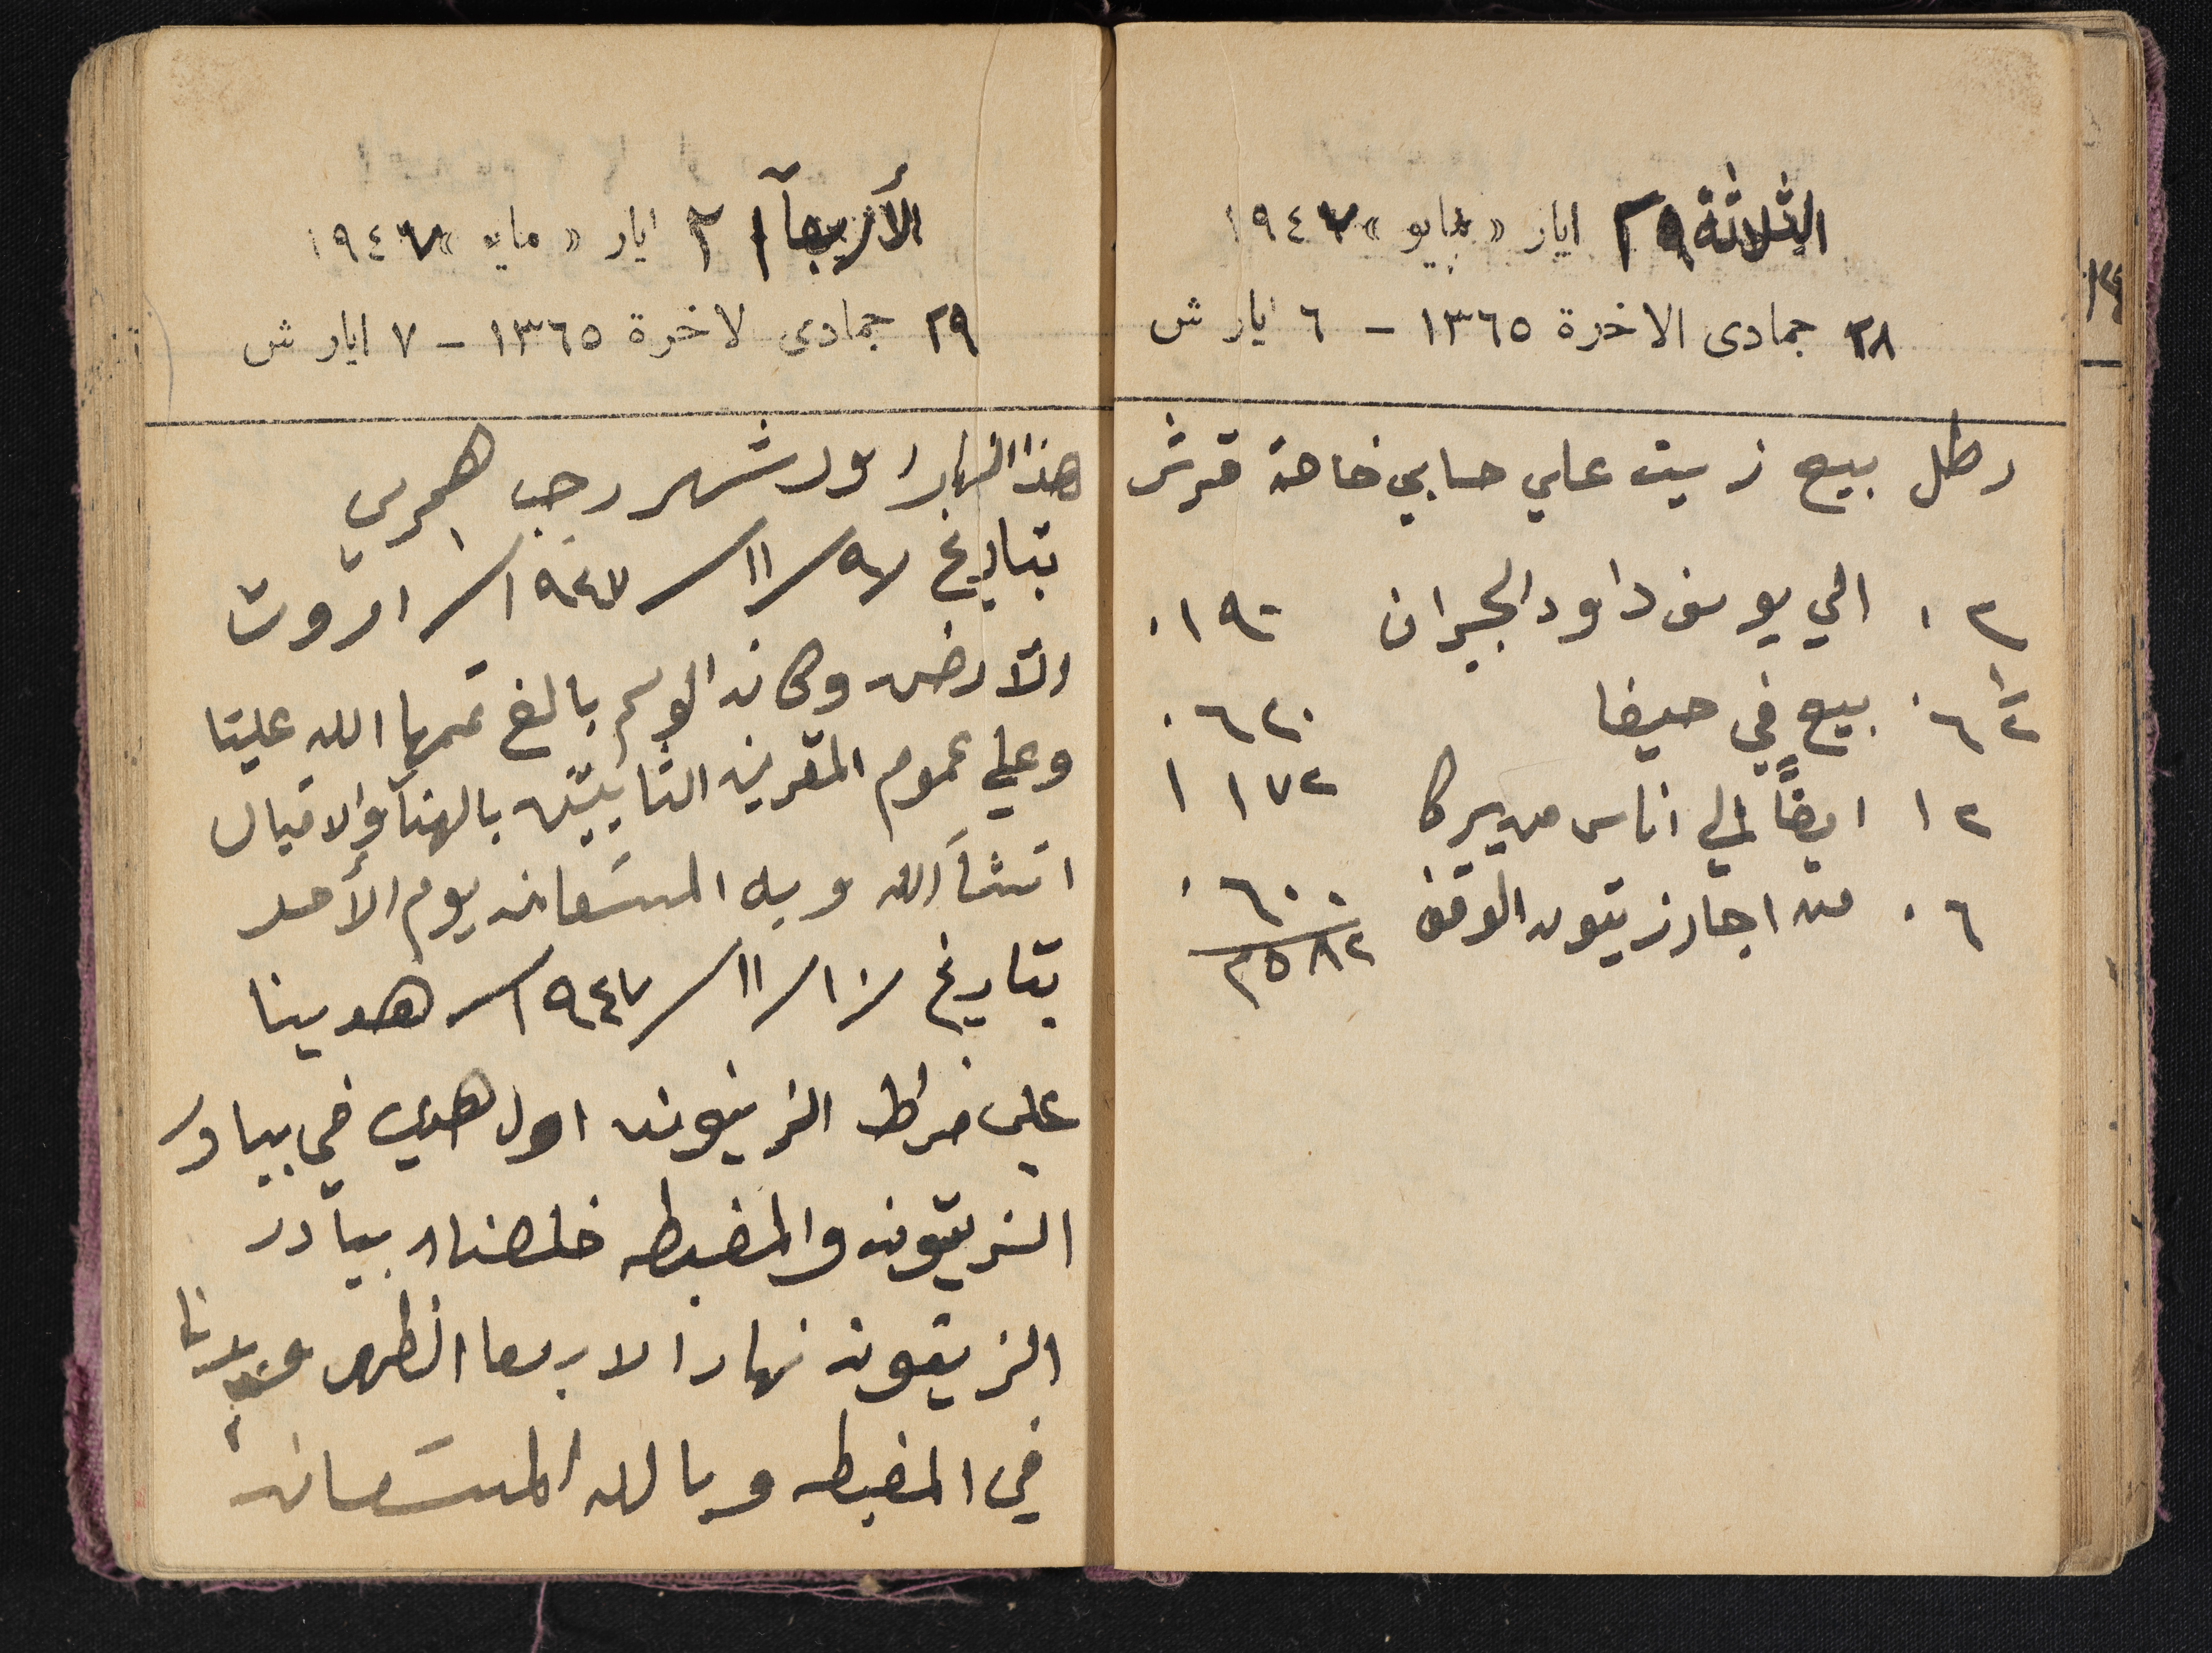 الثلاثة ٢٩ ايار « مايو » ١٩٤٧
٢٨ جمادى الاخرة ١٣٦٥ - ٦ ايار ش
رطل بيع زيت علي حسابي خاصة قرش
٠٢ الي يوسف داود الجبران ٠١٩٠
٠٦ ١/٢ بيع في حيفا ٠٦٢٠
١٢ ايضاً الي اناس من يركا ١١٧٢
٠٦ من اجار زيتون الوقف ٠٦٠٠
٢٥٨٢
الأربعآ ٢١ ايار « مايو » ١٩٤٧
٢٩ جمادى لاخرة ١٣٦٥ - ٧ ايار ش
هذا النهار اول شهر رجب هجري
بتاريخ ٩/١١/١٩٤٧ ارتوت
الآرض وكان الوسم بالغ تممها الله علينا
وعلي عموم المقرين التآيبين بالهنآ والاقبال
انشآ الله وبه المستعان يوم الأحد
بتاريخ /١١/١٩٤٧ هدينا
على خراط الزيتون اول هدي في بيادر
الزيتون والمغيطه خلصنا بيآدر
الزيتون نهار الاربعا الظهر
في المغيطه وبالله المستعان